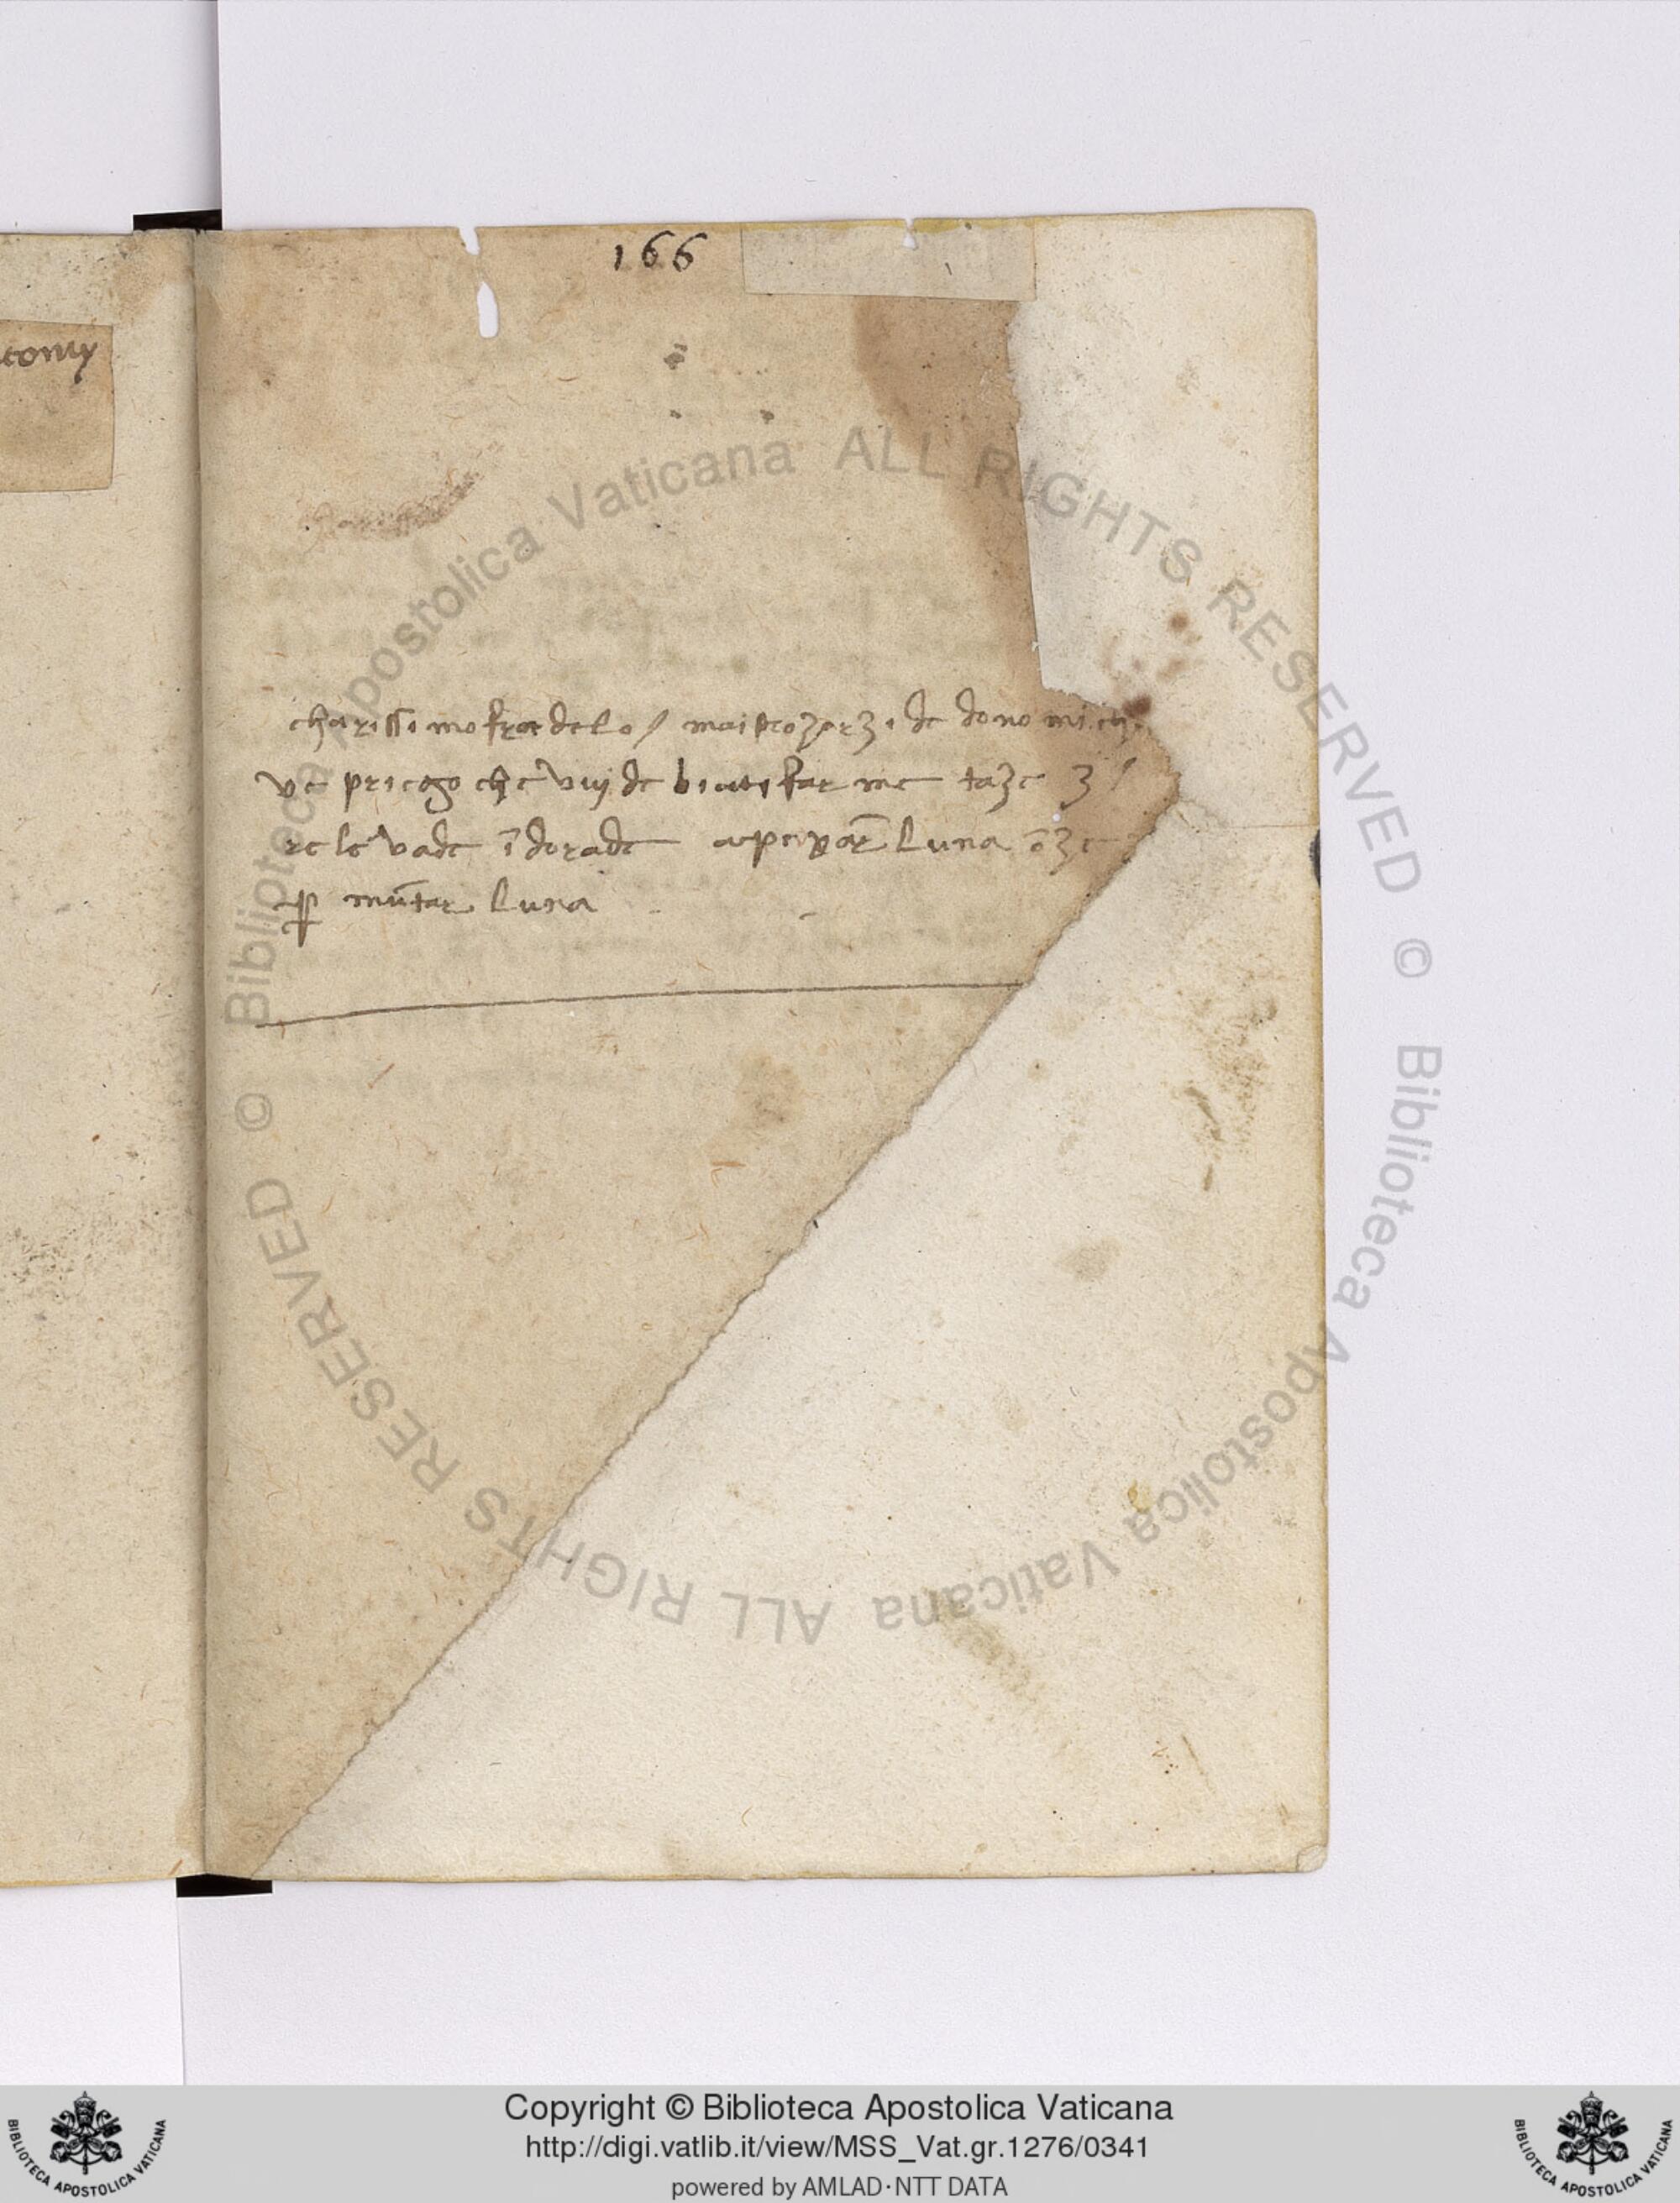 tomy
166
charissimo fradelo / maistro zorzi de dono mich
ve priego che vuj de biutifar me taze 3
re le vade īdorade luna
ꝑ mūtar luna
© Biblioteca Apostolica Vaticana ALL RIGHTS RESERVED
© Biblioteca Apostolica Vaticana ALL RIGHTS RESERVED
BIBLIOTECA APOSTOLICA VATICANA
Copyright © Biblioteca Apostolica Vaticana
http://digi.vatlib.it/view/MSS_Vat.gr.1276/0341
powered by AMLAD·NTT DATA
BIBLIOTECA APOSTOLICA VATICANA